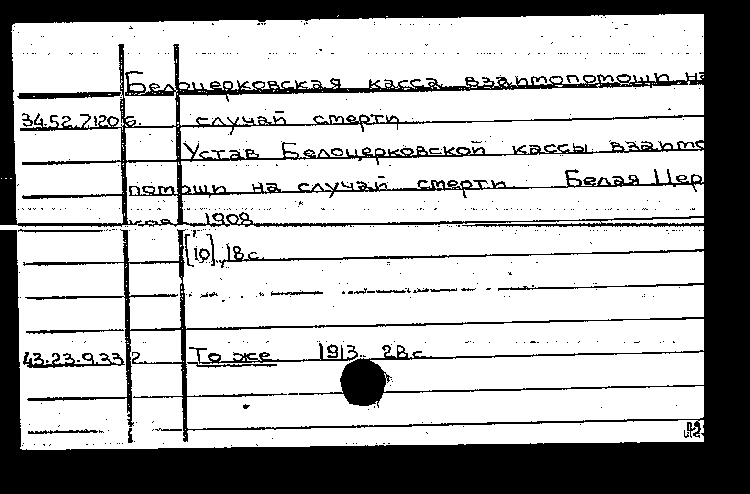 Белоцерковская касса взаимопомощи на
34.52.7.120 б. случай смерти
Устав Белоцерковской кассы взаимо
помощи на случай смерти Белая Цер
ковь 1908
[10], 18 с.
43.23.9.33 2. То же 1913. 28 с.